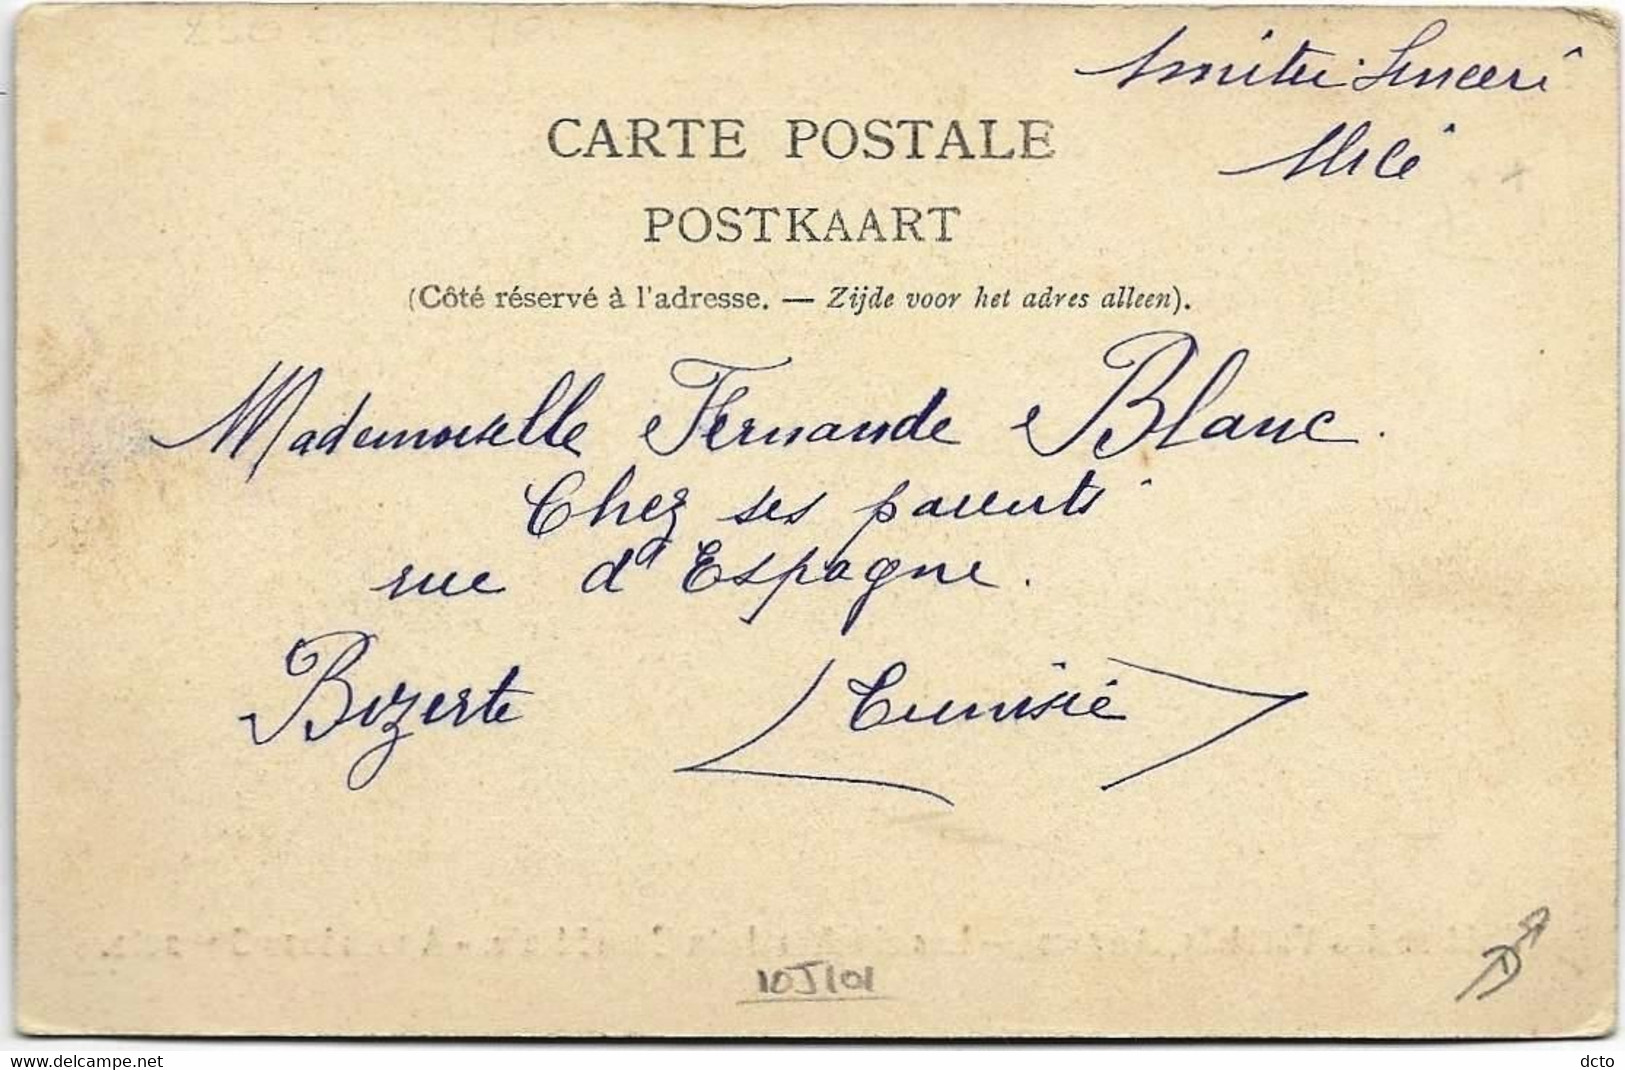 Amitié Sincère
Alice
CARTE POSTALE
POSTKAART
(Côté réservé à l'adresse. — Zijde voor het adres alleen).
Mademoiselle Fernande Blanc.
Chez ses parents
rue d'Espagne.
Bizerte Tunisie
10J101
www.delcampe.net
dcto